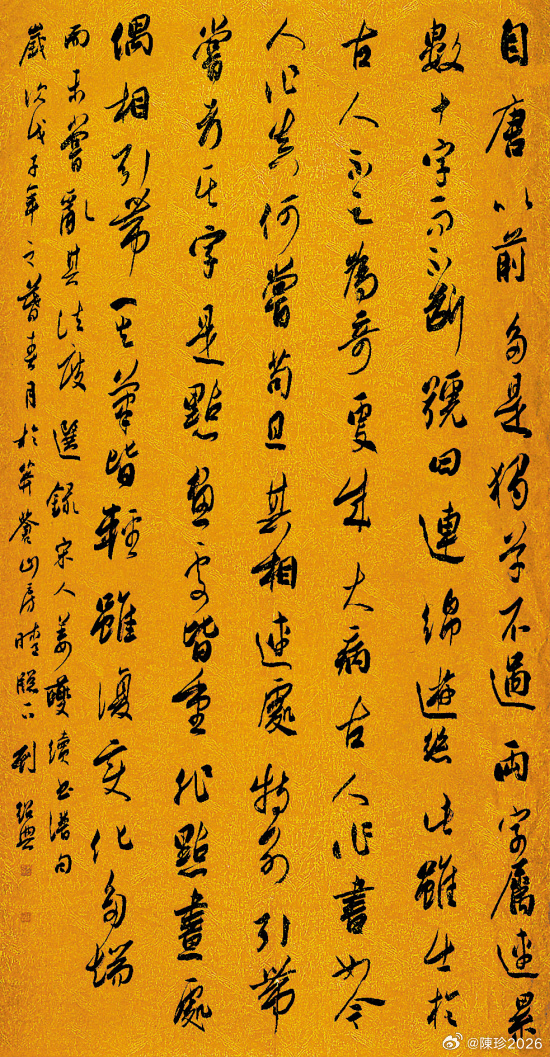 自唐以前多是獨草不過兩字屬連累
數十字而不斷號曰連綿遊絲此雖出於
古人不足為奇更成大病古人作書如今
人作真何嘗苟且其相連處特是引帶
嘗考其字是點畫處皆重非點畫處
偶相引帶其筆皆輕雖復變化多端
而未嘗亂其法度選錄宋人姜夔續書譜句
歲次戊子年之暮春月於莽蒼山房晴牕下劉紹典
@陳珍2026